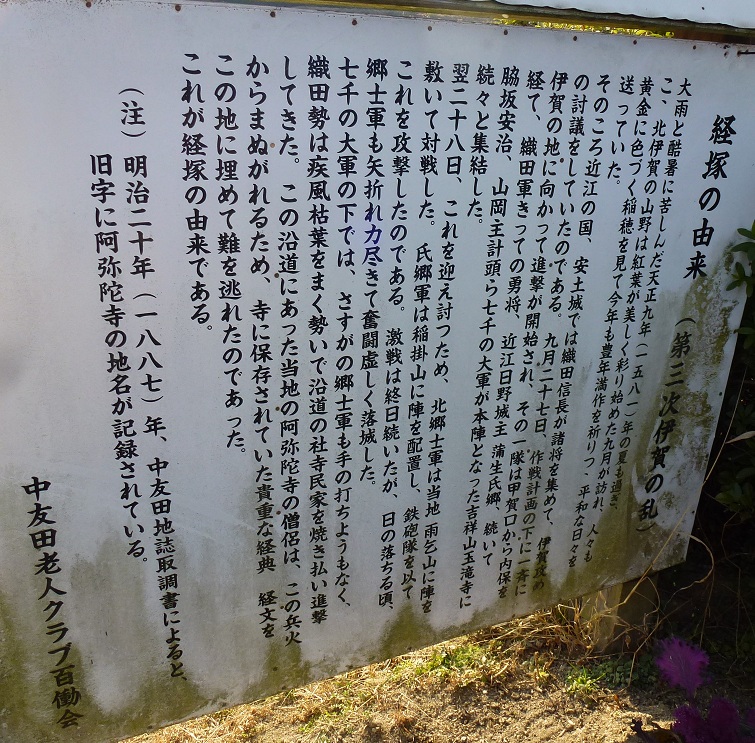 経塚の由来 （第二次伊賀の乱）
大雨と酷暑に苦しんだ天正九年（一五八一）年の夏も過ぎ、
こゝ、北伊賀の山野は紅葉が美しく彩り始めた九月が訪れ、人々も
黄金に色づく稲穂を見て今年も豊年満作を祈りつゝ平和な日々を
送っていた。
そのころ近江の国、安土城では織田信長が諸将を集めて、伊賀攻め
の討議をしていたのである。九月二十七日、作戦計画の下に一斉に
伊賀の地に向かって進撃が開始され、その一隊は甲賀口から内保を
経て、織田軍きっての勇将、近江日野城主蒲生氏郷、続いて
脇坂安治、山岡主計頭ら七千の大軍が本陣となった吉祥山玉滝寺に
続々と集結した。
翌二十八日、これを迎え討つため、北郷士軍は当地雨乞山に陣を
敷いて対戦した。氏郷軍は稲掛山に陣を配置し、鉄砲隊を以て
これを攻撃したのである。激戦は終日続いたが、日の落ちる頃、
郷士軍も矢折れ力尽きて奮闘虚しく落城した。
七千の大軍の下では、さすがの郷士軍も手の打ちようもなく、
織田勢は疾風枯葉をまく勢いで沿道の社寺民家を焼き払い進撃
してきた。この沿道にあった当地の阿弥陀寺の僧侶は、この兵火
からまぬがれるため、寺に保存されていた貴重な経典 経文を
この地に埋めて難を逃れたのであった。
これが経塚の由来である。
（注）明治二十年（一八八七）年、中友田地誌取調書によると、
旧字に阿弥陀寺の地名が記録されている。
中友田老人クラブ百働会